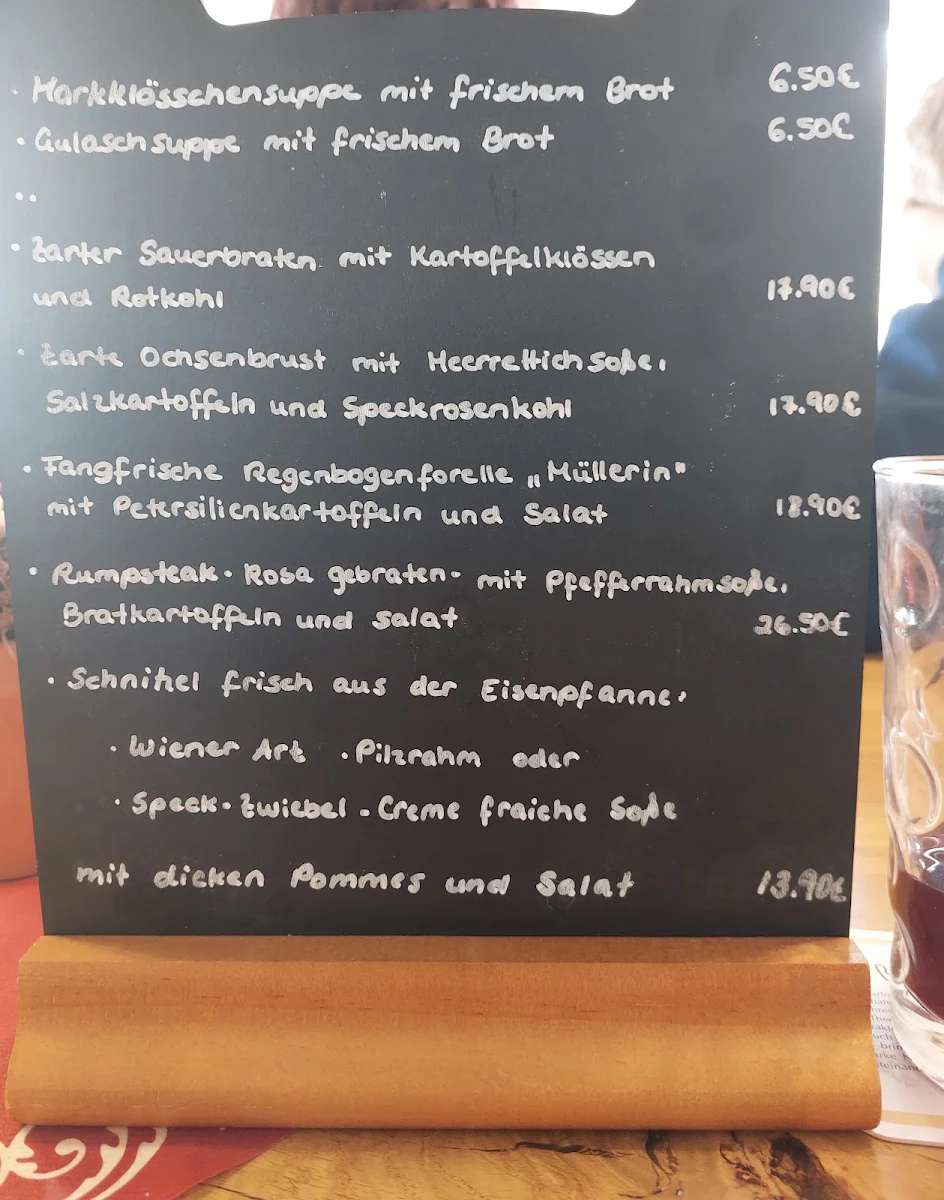 · Markklösschensuppe mit frischem Brot 6.50€
· Gulaschsuppe mit frischem Brot 6.50€
··
· Zarter Sauerbraten mit Kartoffelklössen
und Rotkohl 17.90€
· Zarte Ochsenbrust mit Meerrettichsoße,
Salzkartoffeln und Speckrosenkohl 17.90€
· Fangfrische Regenbogenforelle „Müllerin"
mit Petersilienkartoffeln und Salat 18.90€
· Rumpsteak - Rosa gebraten - mit Pfefferrahmsoße,
Bratkartoffeln und Salat 26.50€
· Schnitzel frisch aus der Eisenpfanne,
· Wiener Art · Pilzrahm oder
· Speck-Zwiebel-Creme fraiche Soße
mit dicken Pommes und Salat 13.90€